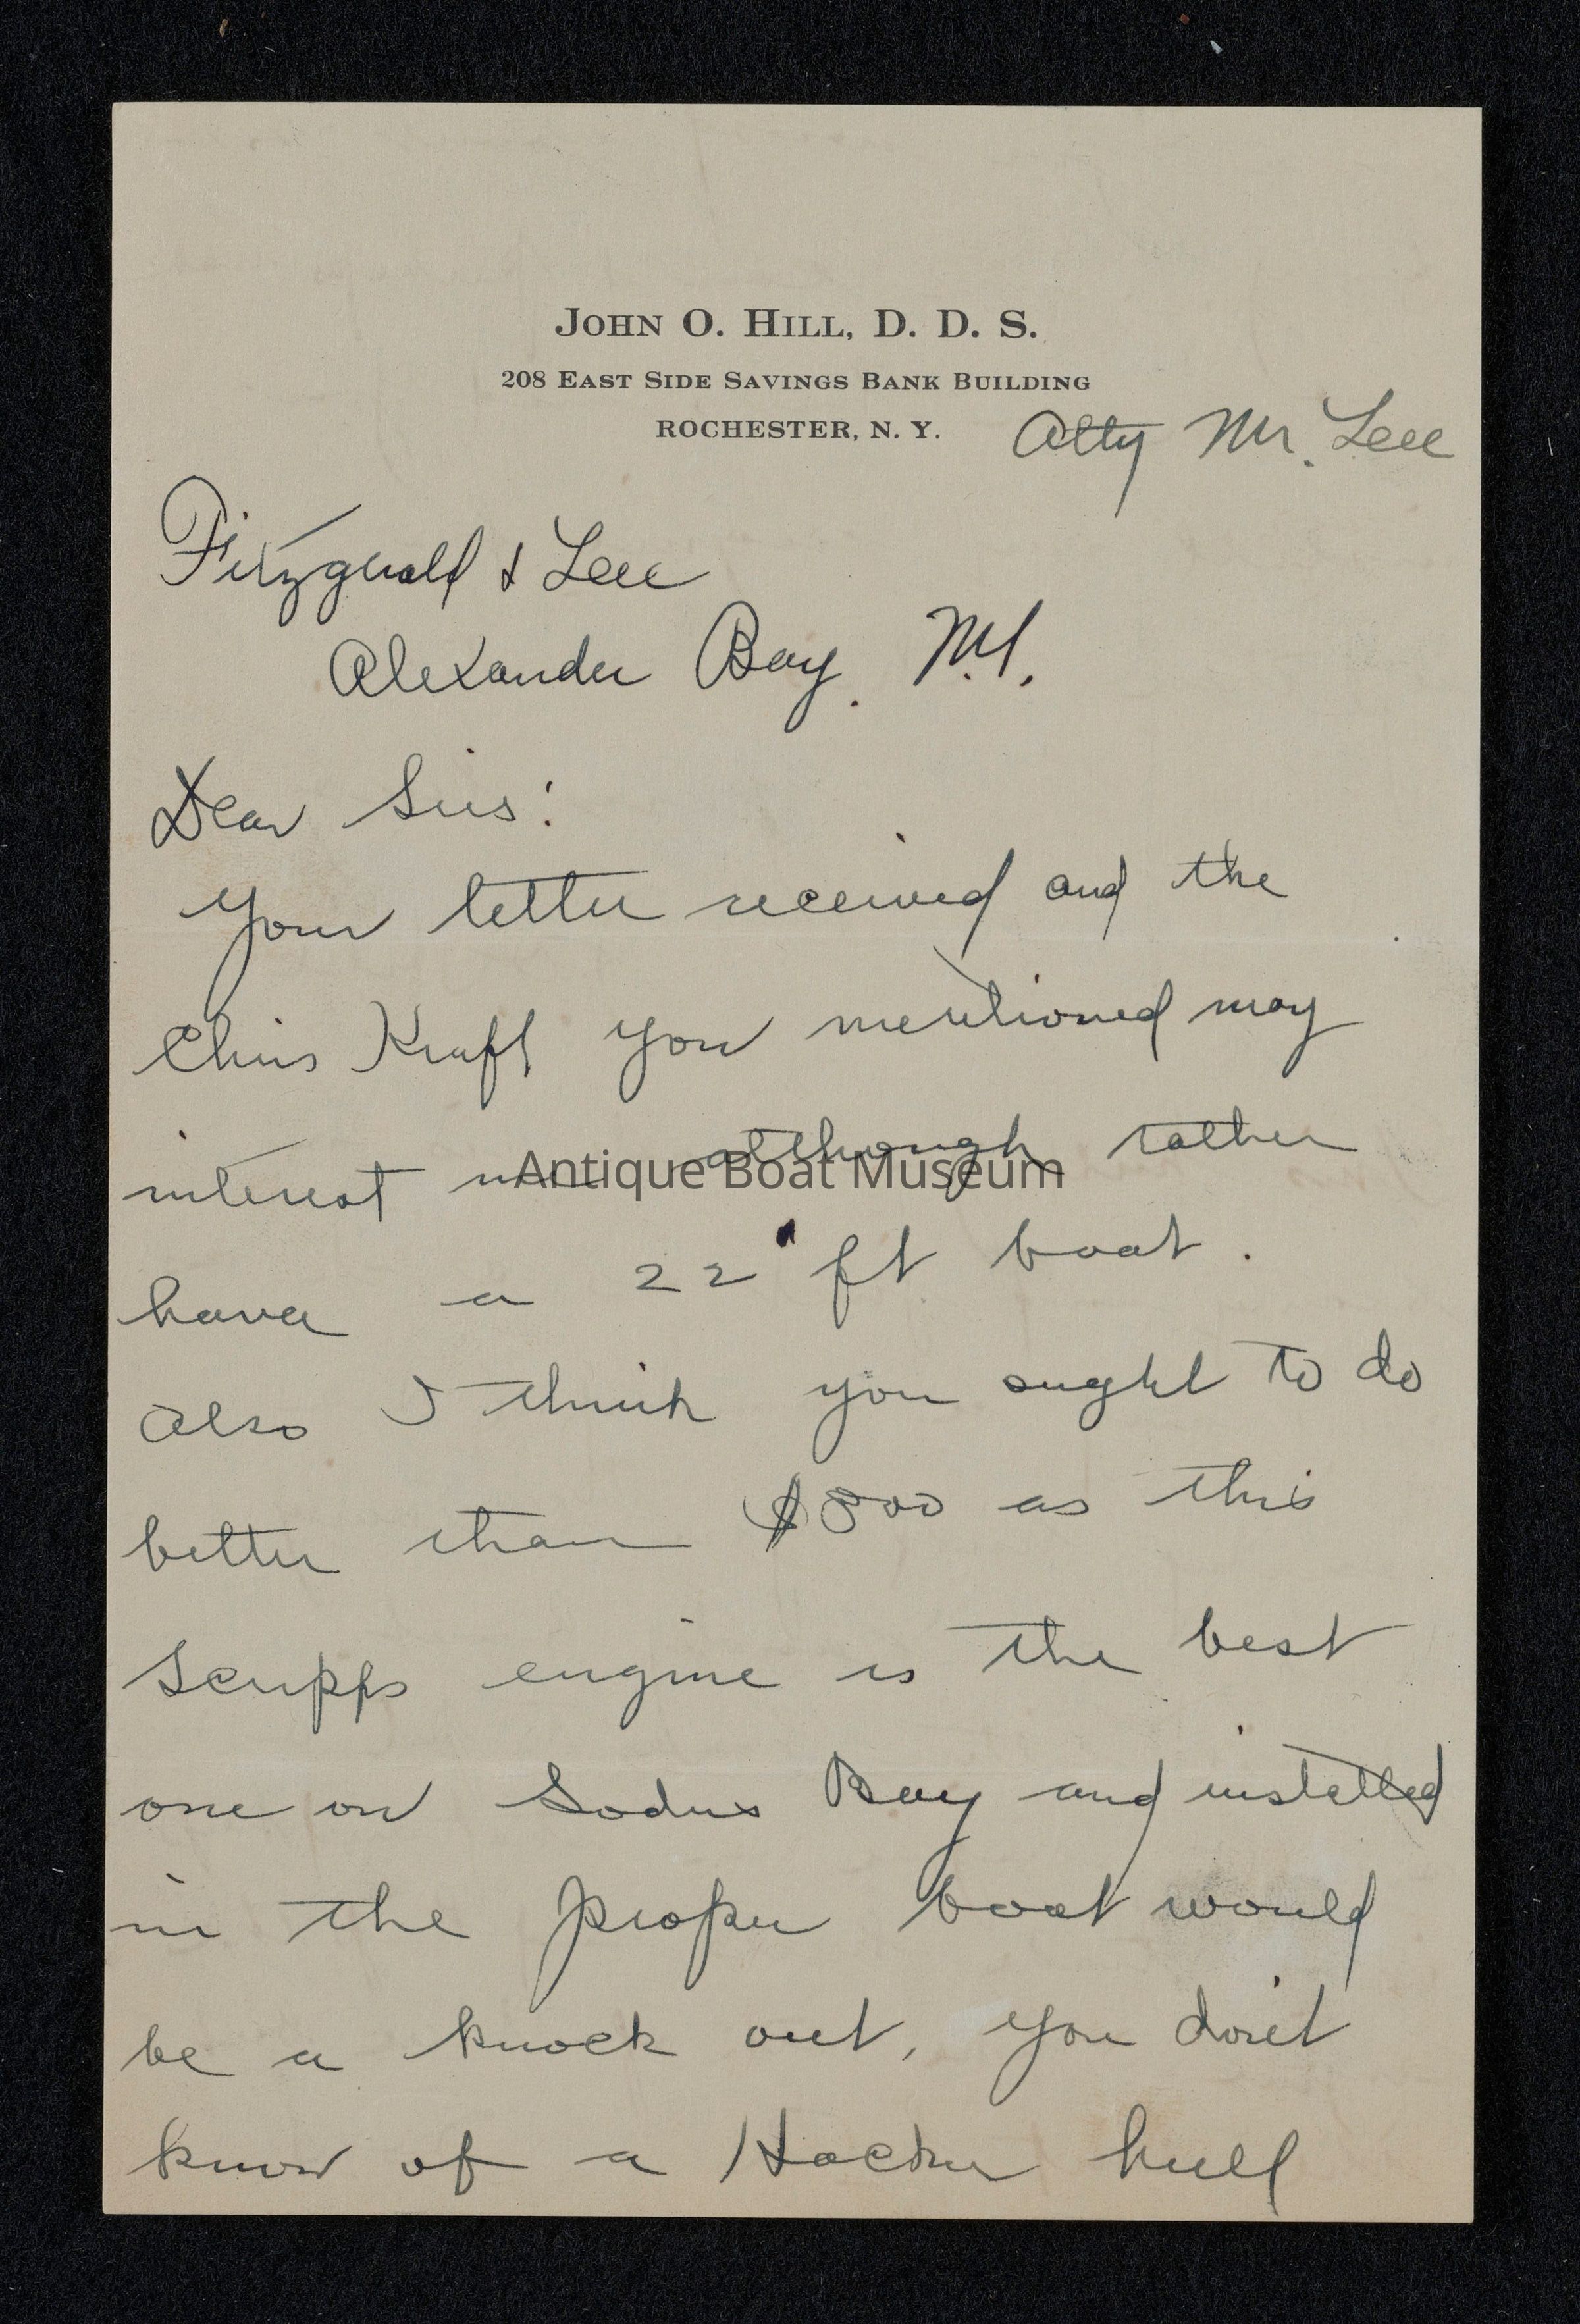 JOHN O. HILL, D. D. S.
208 EAST SIDE SAVINGS BANK BUILDING
ROCHESTER, N. Y.
Atty Mr. Lee
Fitzgerald & Lee
Alexander Bay. N.Y.
Dear Sirs:
Your letter received and the
Chris Kraft you mentioned may
interest me although rather
Antique Boat Museum
have a 22 ft boat.
Also I think you ought to do
better than $800 as this
Scripps engine is the best
one on Sodus Bay and installed
in the proper boat would
be a knock out, you don't
know of a Hacker hull